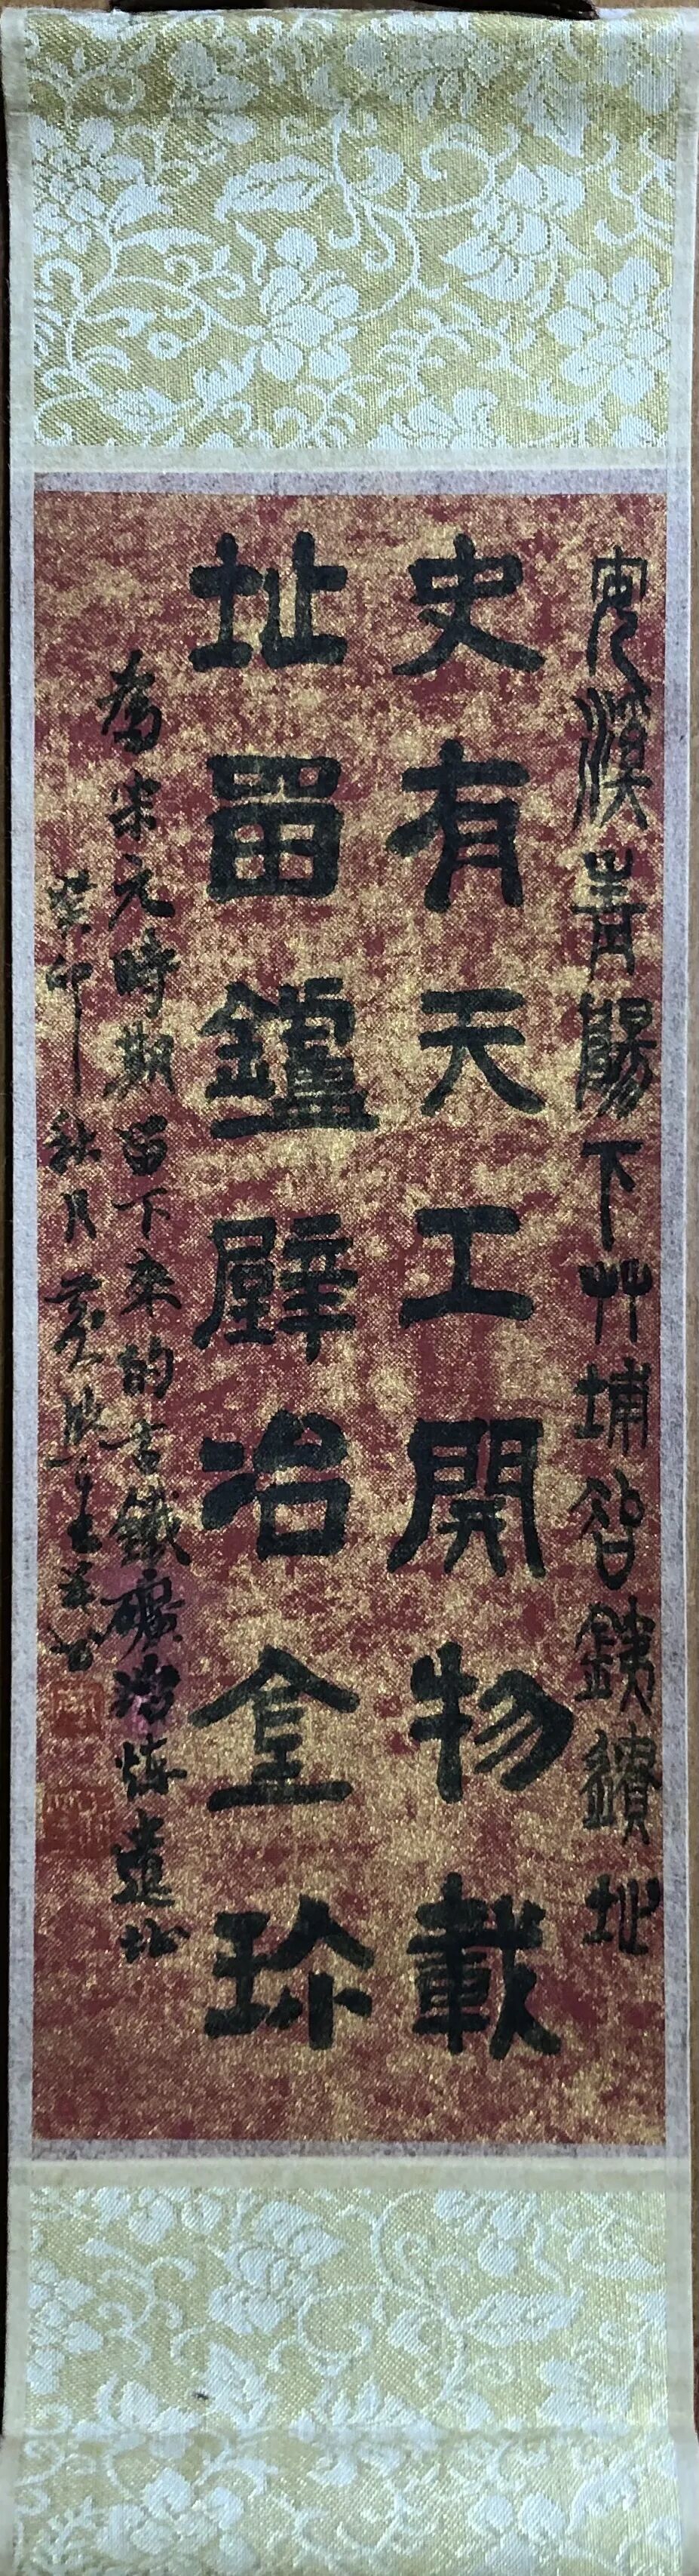 安溪青陽下艸埔冶鐵鑛址
史有天工開物載
址留鑪壁冶金珍
為宋元時期留下來的古鐵礦冶煉遺址
癸卯秋月黃